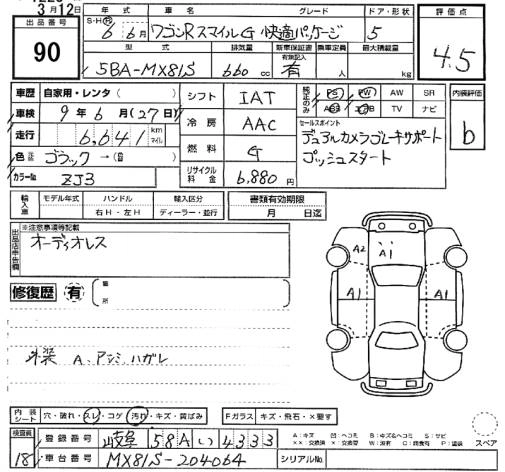 3月12日
出品番号
90
年式 車名 グレード ドア・形状
S・H・R 6年 6月 ワゴンRスマイル G 快適パッケージ 5
評価点
4.5
型式 排気量 新車保証書 有無記入 乗車定員 最大積載量
5BA-MX81S 660 cc 有 人 kg
車歴 自家用・レンタ( )
車検 9年6月(27日)
走行 6,641 km マイル
色 ブラック→( )
カラーNo ZJ3
シフト IAT
冷房 AAC
燃料 G
リサイクル料金 6,880円
純正のみ PS PW AW SR
TV ナビ
セールスポイント
デュアルカメラブレーキサポート
プッシュスタート
内装評価
b
輸入車 モデル年式 ハンドル 輸入区分 書類有効期限
右H・左H ディーラー・並行 月 日迄
出品店申告欄
※注意事項等記載
オーディオレス
修復歴 有 箇所
A2 A1
A1 A1
外装 A、アンミ、ハガレ
内装シート 穴・破れ・スレ・コゲ 汚れ・キズ・黄ばみ Fガラス キズ・飛石・×要す
検査員 181
登録番号 岐阜 581 い 4333
車台番号 MX81S-204064 シリアルNo.
A:キズ U:ヘコミ B:キズ&ヘコミ S:サビ
××:交換済 ×:交換要 W:波有 C:腐食有 P:塗装
スペア